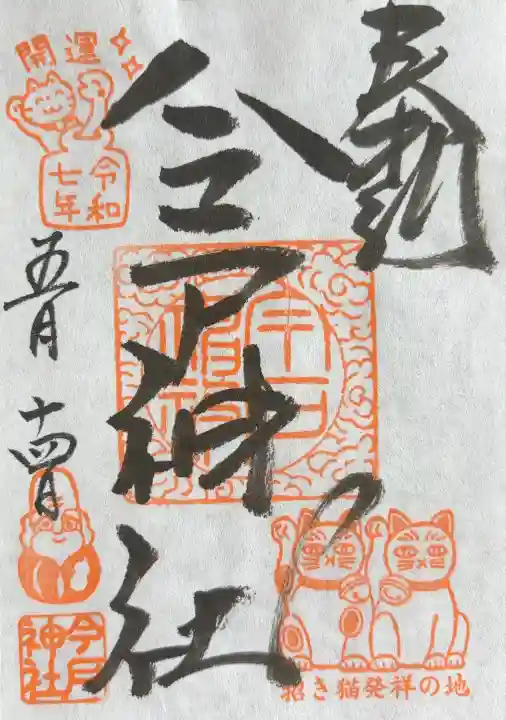 奉拝
今戸神社
開運
令和
七年
五月
十四日
今戸
神社
招き猫発祥の地